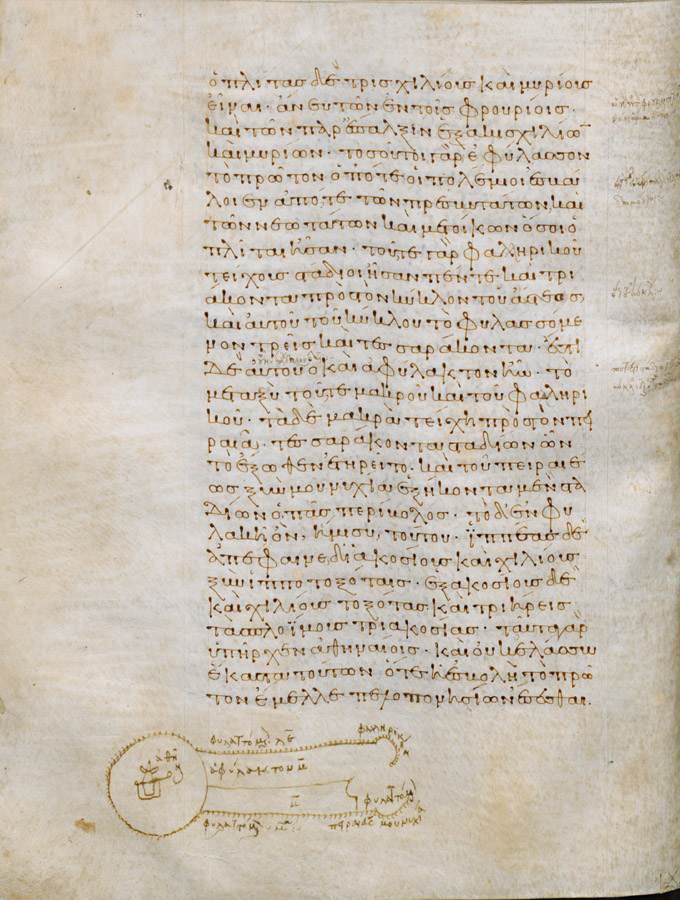 ὁπλίτας δὲ τρισχιλίους καὶ μυρίους
εἶναι· ἄνευ τῶν ἐν τοῖς φρουρίοις·
καὶ τῶν παρ' ἔπαλξιν ἑξακισχιλίω
καὶ μυρίων· τοσοῦτοι γὰρ ἐφύλασσον
τὸ πρῶτον ὁπότε οἱ πολέμιοι ἐσβά
λοιεν ἀπό τε τῶν πρεσβυτάτων, καὶ
τῶν νεωτάτων καὶ μετοίκων ὅσοι ὁ
πλίται ἦσαν· τοῦ τε γὰρ φαληρικοῦ
τείχους στάδιοι ἦσαν πέντε καὶ τρι
άκοντα πρὸς τὸν κύκλον τοῦ ἄστεως,
καὶ αὐτοῦ τοῦ κύκλου τὸ φυλασσόμε
νον τρεῖς καὶ τεσσαράκοντα· ἔστι
δὲ αὐτοῦ ὃ καὶ ἀφύλακτον ἦν· τὸ
μεταξὺ τοῦ τε μακροῦ καὶ τοῦ φαληρι
κοῦ· τὰ δὲ μακρὰ τείχη πρὸς τὸν πει
ραιᾶ, τεσσαράκοντα σταδίων ὧν
τὸ ἔξωθεν ἐτηρεῖτο· καὶ τοῦ πειραιέ
ως ξὺν μουνυχία ἑξήκοντα μὲν στα
δίων ὁ πᾶς περίβολος· τὸ δ' ἐν φυ
λακῆ ὂν, ἥμισυ τούτου· ἱππέας δὲ
ἀπέφαινε διακοσίους καὶ χιλίους
ξὺν ἱπποτοξόταις· ἑξακοσίους δὲ
καὶ χιλίους τοξότας, καὶ τριήρεις
τὰς πλοΐμους τριακοσίας· ταῦτα γὰρ
ὑπῆρχεν ἀθηναίοις· καὶ οὐκ ἐλάσσω
ἕκαστα τούτων, ὅτε ἡ ἐσβολὴ τὸ πρῶ
τον ἔμελλε πελοποννησίων ἔσεσθαι.
λε
φαληρικὸν
ἀθῆ
ἀφύλακτον μ
μ
πειραιὰς μουνυχία